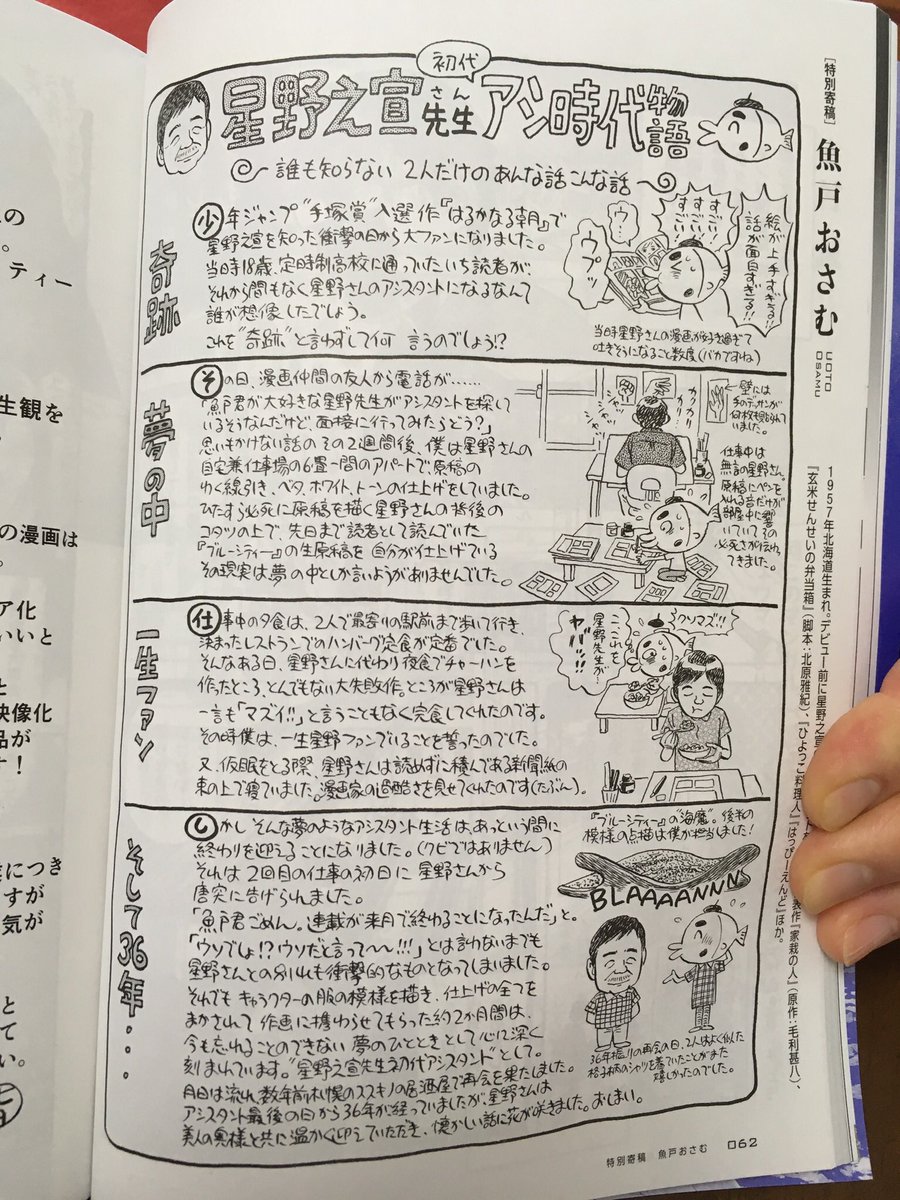 [特別寄稿] 魚戸おさむ
UOTO
OSAMU
1957年北海道生まれ。デビュー前に星野之宣
表作『家栽の人』(原作:毛利甚八)、
『玄米せんせいの弁当箱』(脚本:北原雅紀)、『ひよっこ料理人』『はっぴーえんど』ほか。
初代
星野之宣さん先生アシ時代物語
誰も知らない 2人だけのあんな話こんな話
奇跡
少年ジャンプ“手塚賞”入選作『はるかなる朝』で
星野之宣を知った衝撃の日から大ファンになりました。
当時18歳、定時制高校に通っていたいち読者が、
それから間もなく星野さんのアシスタントになるなんて
誰が想像したでしょう。
これを“奇跡”と言わずして何言うのでしょう!?
絵が上手すぎる!!
話が面白すぎる!!
すごい
すごい
すごい!!
ウ…
ウプッ
当時星野さんの漫画が好き過ぎて
吐きそうになること数度(バカですね)
夢の中
その日、漫画仲間の友人から電話が……
「魚戸君が大好きな星野先生がアシスタントを探して
いるそうなんだけど、面接に行ってみたらどう?」
思いもかけない話のその2週間後、僕は星野さんの
自宅兼仕事場の6畳一間のアパートで、原稿の
わく線引き、ベタ、ホワイト、トーンの仕上げをしていました。
ひたすら必死に原稿を描く星野さんの背後の
コタツの上で、先日まで読者として読んでいた
『ブルーシティー』の生原稿を自分が仕上げている
その現実は夢の中としか言いようがありませんでした。
カリカリ
壁には
手のデッサンが
何枚も貼られて
いました。
仕事中は
無言の星野さん。
原稿にペンを
入れる音だけが
部屋中に響
いていてその
必死さが伝わっ
てきました。
一生ファン
仕事中の夕食は、2人で最寄りの駅前まで歩いて行き、
決まったレストランでのハンバーグ定食が定番でした。
そんなある日、星野さんに代わり夜食でチャーハンを
作ったところ、とんでもない大失敗作。ところが星野さんは
一言も「マズイ!!」と言うこともなく完食してくれたのです。
その時僕は、一生星野ファンでいることを誓ったのでした。
又、仮眠をとる際、星野さんは読めずに積んである新聞紙の
束の上で寝ていました。漫画家の過酷さを見せてくれたのです(たぶん)。
クソマズ!!
こ、これを
星野先生が…
ヤバッ!!
そして36年・・・
しかしそんな夢のようなアシスタント生活は、あっという間に
終わりを迎えることになりました。(クビではありません)
それは2回目の仕事の初日に星野さんから
唐突に告げられました。
「魚戸君ごめん。連載が来月で終わることになったんだ」と。
「ウソでしょ!?ウソだと言って〜〜!!!」とは言わないまでも
星野さんとの別れも衝撃的なものとなってしまいました。
それでもキャラクターの服の模様を描き、仕上げの全てを
まかされて作画に携わらせてもらった約2か月間は、
今も忘れることのできない夢のひとときとして心に深く
刻まれています。“星野之宣先生初代アシスタント”として。
月日は流れ数年前札幌のススキノの居酒屋で再会を果たしました。
アシスタント最後の日から36年が経っていましたが、星野さんは
美人の奥様と共に温かく迎えていただき、懐かしい話に花が咲きました。おしまい。
『ブルーシティー』の“海魔”。後半の
模様の点描は僕が担当しました!
BLAAAANNN
36年振りの再会の日、2人はよく似た
格子柄のシャツを着ていたことがまた
嬉しかったのでした。
特別寄稿 魚戸おさむ 062
の
。
ティー
生観を
の漫画は
。
ア化
いいと
と
映像化
品が
す!
能につき
すが
気が
と
って
い。